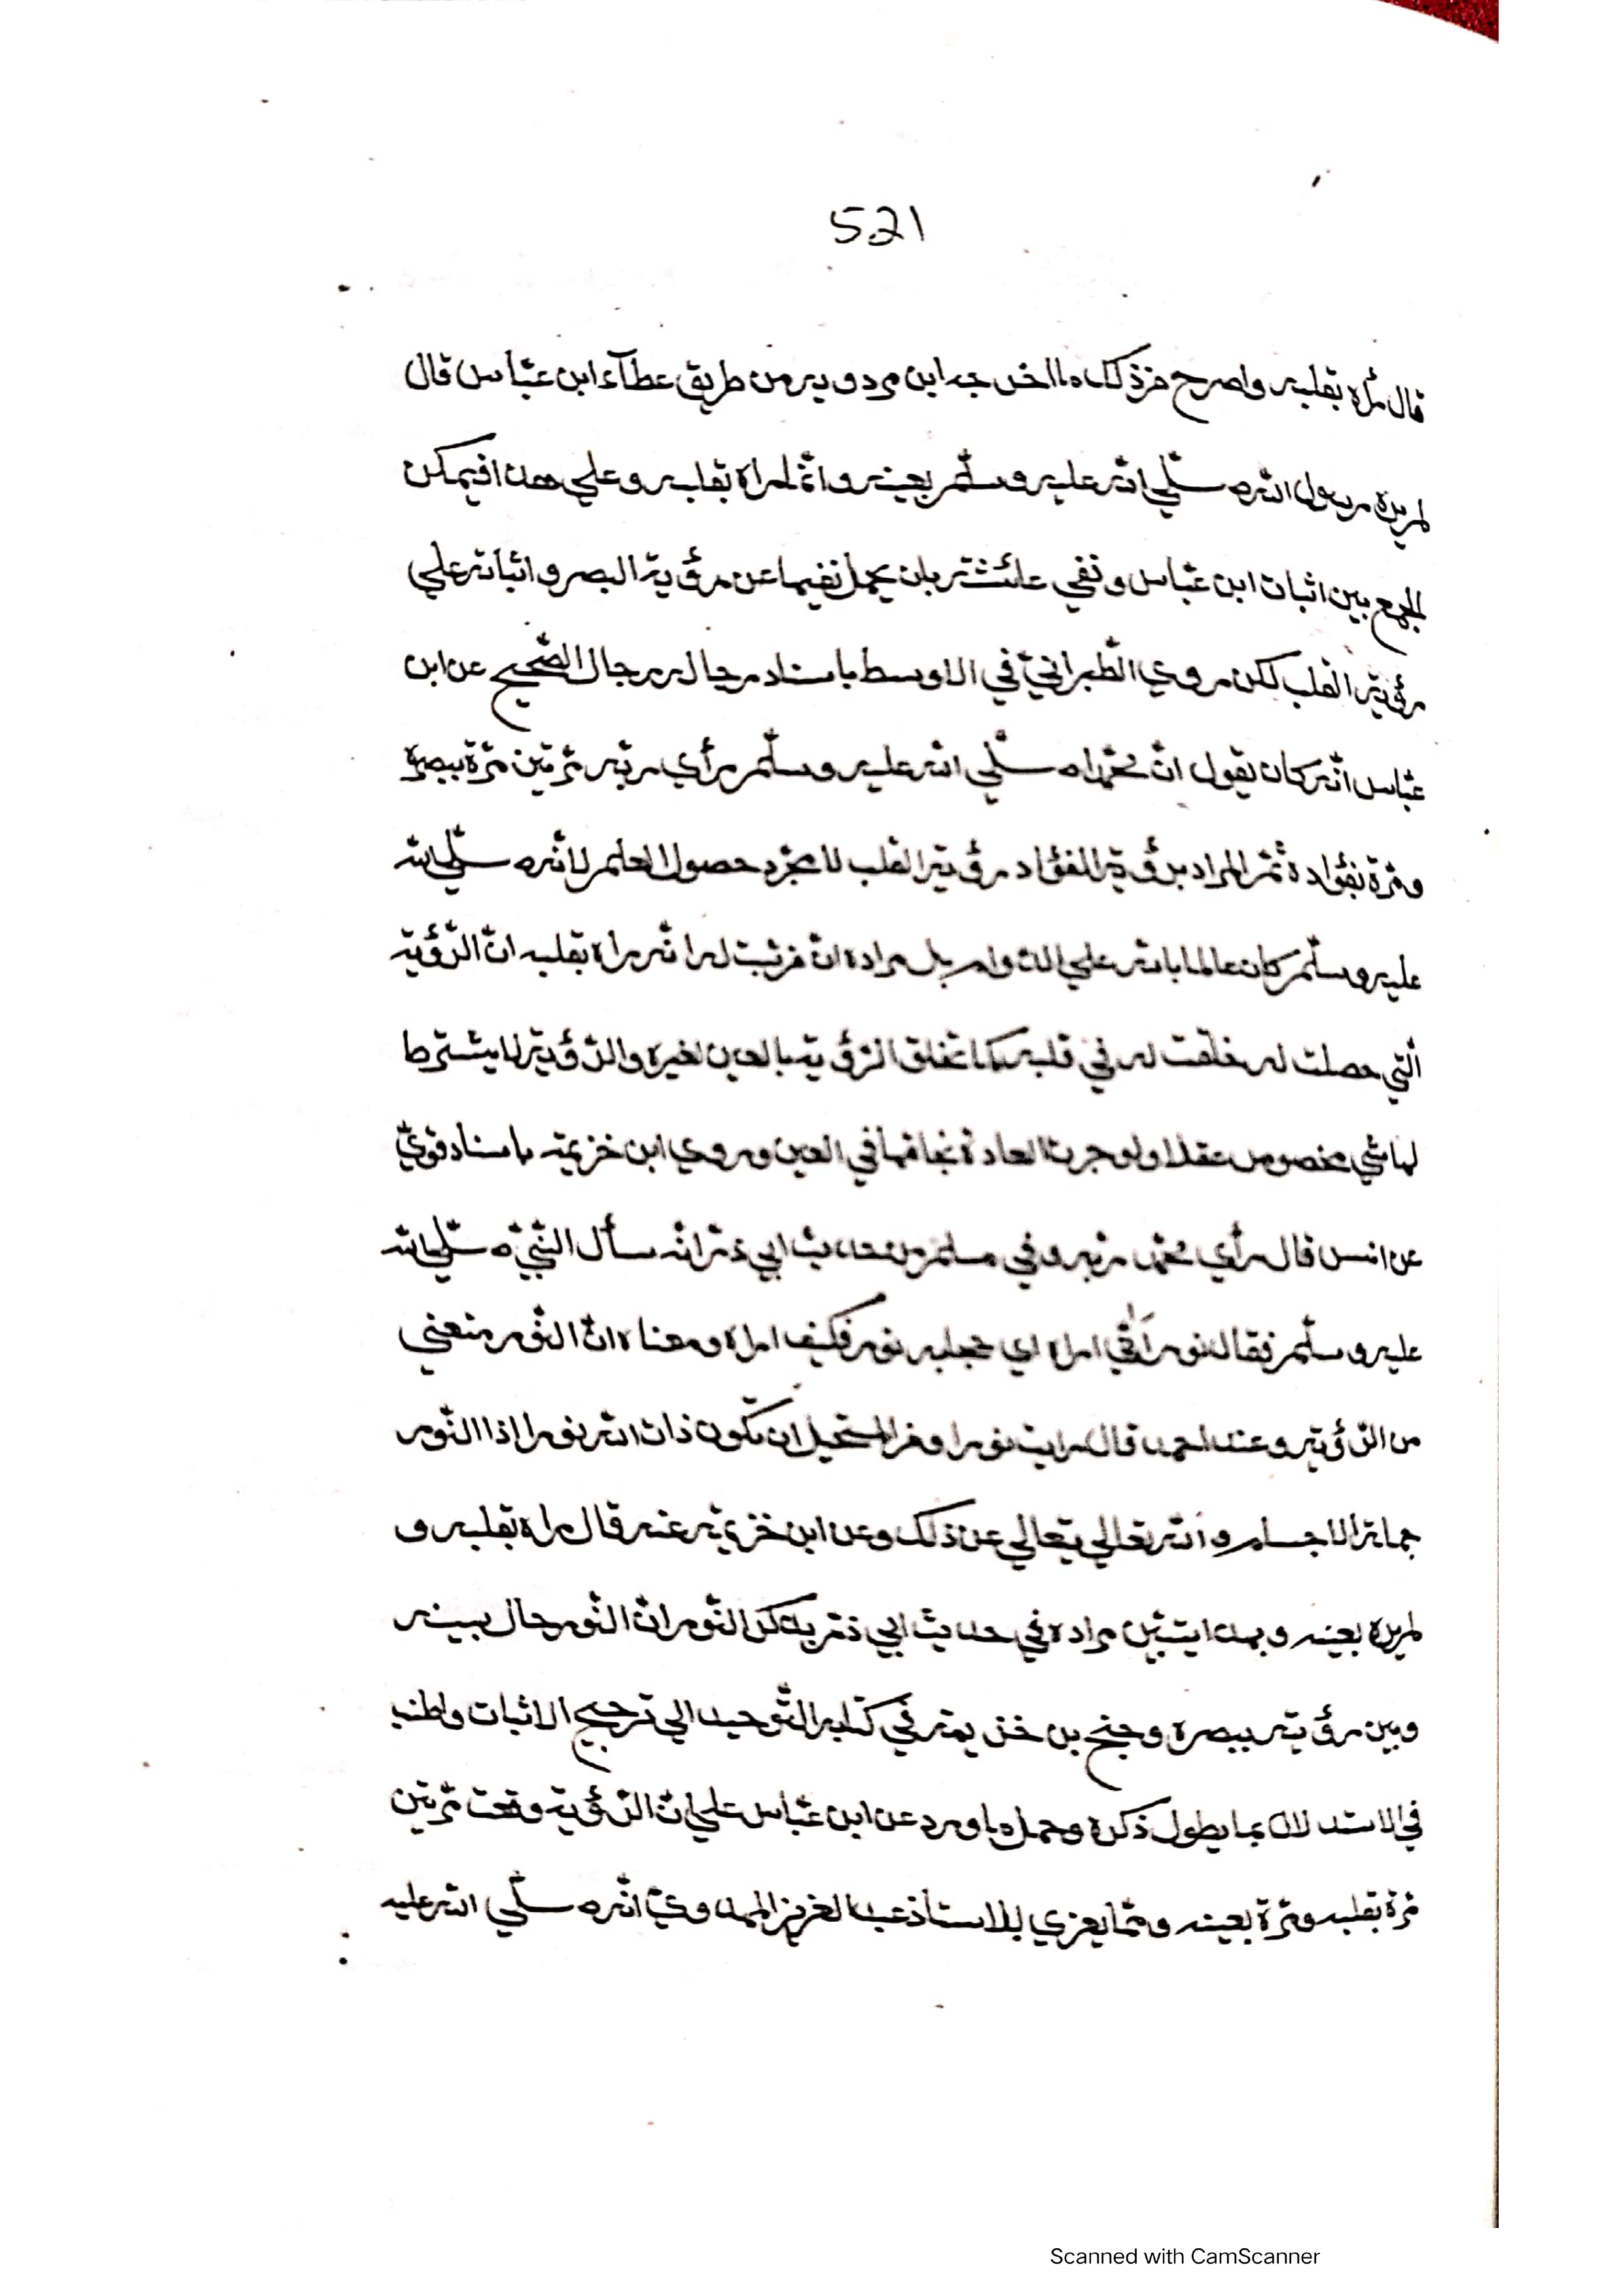 521
قال رأه بقلبه واصرح من ذلك ما اخرجه ابن مردويه من طريق عطآء ابن عبّاس قال
لم يره رسول الله صلّي الله عليه وسلّم بعينه وانّما راه بقلبه وعلي هذا فيمكن
الجمع بين اثبات ابن عبّاس ونفي عائشة بان يحمل نفيها عن رؤية البصر واثباته علي
رؤية القلب لكن روي الطّبرانيّ في الاوسط باسناد رجاله رجال الصّحيح عن ابن
عبّاس انّه كان يقول انّ محمّدا صلّي الله عليه وسلّم رأي ربّه مرّتين مرّة ببصره
ومرّة بفؤاده ثمّ المراد برؤية الفؤاد رؤية القلب لا مجرّد حصول العلم لانّه صلّي الله
عليه وسلّم كان عالما بالله علي الدّوام بل مراده انّ من ثبت له انّه راه بقلبه انّ الرّؤية
الّتي حصلت له خلقت له في قلبه كما تخلق الرّؤية بالعين لغيره والرّؤية لا يشترط
لها شي مخصوص عقلا ولو جرت العادة بخلقها في العين وروي ابن خزيمة باسناد قويّ
عن انس قال رأي محمّد ربّه وفي مسلم من حديث ابي ذرّ انّه سأل النّبيّ صلّي الله
عليه وسلّم فقال نور أنّي اراه اي حجابه نور فكيف اراه ومعناه انّ النّور منعني
من الرّؤية وعند احمد قال رايت نورا ومن المستحيل ان تكون ذات الله نورا اذ النّور
من جملة الاجسام والله تعالي يتعالي عن ذلك وعن ابن خزيمة عنه قال راه بقلبه و
لم يره بعينه وبهذا يتبيّن مراده في حديث ابي ذرّ بذكر النّور انّ النّور حال بينه
وبين رؤيته ببصره وجنح بن خزيمة في كتاب التّوحيد الي ترجيح الاثبات واطنب
في الاستدلال بما يطول ذكره وحمل ما ورد عن ابن عبّاس علي انّ الرّؤية وقعت مرّتين
مرّة بقلبه ومرّة بعينه وممّا يعزي للاستاذ عبد العزيز المهدويّ انّه صلّي الله عليه
Scanned with CamScanner